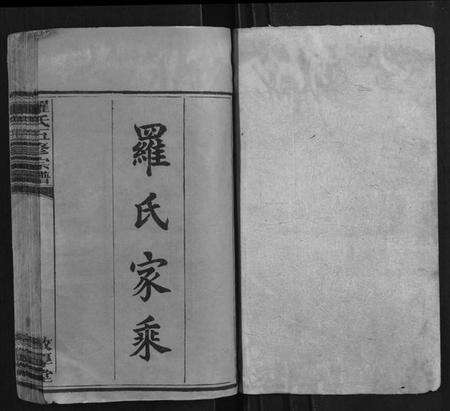 羅氏家乘
羅氏五修宗譜
敦厚堂